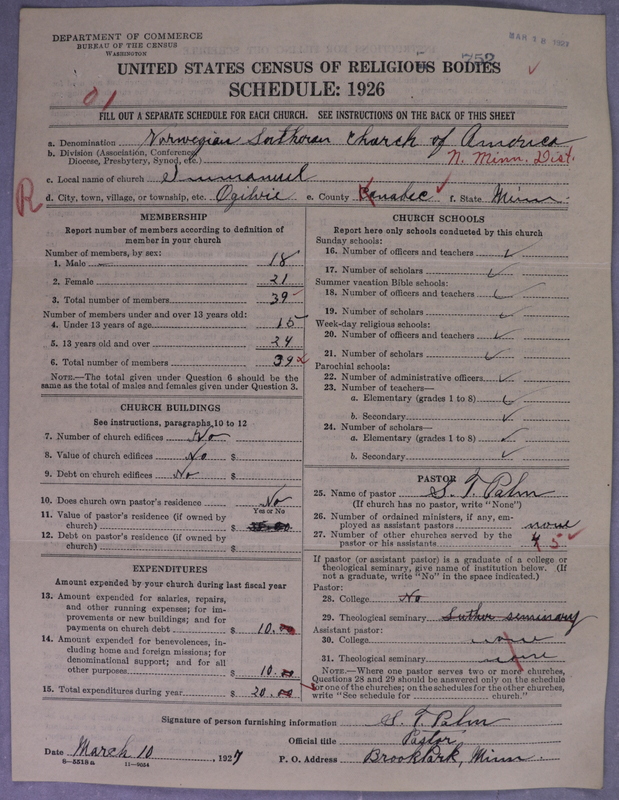 DEPARTMENT OF COMMERCE
BUREAU OF THE CENSUS
WASHINGTON
MAR 18 1927
752
UNITED STATES CENSUS OF RELIGIOUS BODIES
SCHEDULE: 1926
01
FILL OUT A SEPARATE SCHEDULE FOR EACH CHURCH. SEE INSTRUCTIONS ON THE BACK OF THIS SHEET
a. Denomination Norwegian Lutheran Church of America
b. Division (Association, Conference, Diocese, Presbytery, Synod, etc.) N. Minn. Dist.
c. Local name of church Immanuel
R
d. City, town, village, or township, etc. Ogilvie e. County Kanabec f. State Minn.
MEMBERSHIP
Report number of members according to definition of
member in your church
Number of members, by sex:
1. Male 18
2. Female 21
3. Total number of members 39
Number of members under and over 13 years old:
4. Under 13 years of age 15
5. 13 years old and over 24
6. Total number of members 39
NOTE.—The total given under Question 6 should be the
same as the total of males and females given under Question 3.
CHURCH BUILDINGS
See instructions, paragraphs, 10 to 12
7. Number of church edifices No
8. Value of church edifices No $
9. Debt on church edifices No $
10. Does church own pastor's residence No
Yes or No
11. Value of pastor's residence (if owned by
church) $
12. Debt on pastor's residence (if owned by
church) $
EXPENDITURES
Amount expended by your church during last fiscal year
13. Amount expended for salaries, repairs,
and other running expenses; for im-
provements or new buildings; and for
payments on church debt $ 10.00
14. Amount expended for benevolences, in-
cluding home and foreign missions; for
denominational support; and for all
other purposes $ 10.00
15. Total expenditures during year $ 20.00
CHURCH SCHOOLS
Report here only schools conducted by this church
Sunday schools:
16. Number of officers and teachers
17. Number of scholars
Summer vacation Bible schools:
18. Number of officers and teachers
19. Number of scholars
Week-day religious schools:
20. Number of officers and teachers
21. Number of scholars
Parochial schools:
22. Number of administrative officers
23. Number of teachers—
a. Elementary (grades 1 to 8)
b. Secondary
24. Number of scholars—
a. Elementary (grades 1 to 8)
b. Secondary
PASTOR
25. Name of pastor S. T. Palm
(If church has no pastor, write "None")
26. Number of ordained ministers, if any, em-
ployed as assistant pastors none
27. Number of other churches served by the
pastor or his assistants 4 5
If pastor (or assistant pastor) is a graduate of a college or
theological seminary, give name of institution below. (If
not a graduate, write "No" in the space indicated.)
Pastor:
28. College No
29. Theological seminary Luther seminary
Assistant pastor:
30. College none
31. Theological seminary none
NOTE.—Where one pastor serves two or more churches,
Questions 28 and 29 should be answered only on the schedule
for one of the churches; on the schedules for the other churches,
write "See schedule for ______ church."
Signature of person furnishing information S. T. Palm
Official title Pastor
Date March 10, 1927 P. O. Address Brookpark, Minn.
8-5518a 11-9054